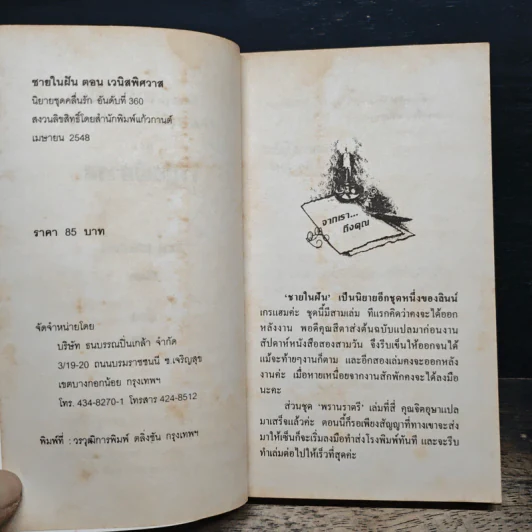 ชายในฝัน ตอน เวนิสพิศวาส
นิยายชุดคลื่นรัก อันดับที่ 360
สงวนลิขสิทธิ์โดยสำนักพิมพ์แก้วกานต์
เมษายน 2548
ราคา 85 บาท
จัดจำหน่ายโดย
บริษัท ธนบรรณปิ่นเกล้า จำกัด
3/19-20 ถนนบรมราชชนนี ซ.เจริญสุข
เขตบางกอกน้อย กรุงเทพฯ
โทร. 434-8270-1 โทรสาร 424-8512
พิมพ์ที่ : วรวุฒิการพิมพ์ ตลิ่งชัน กรุงเทพฯ
จากเรา...
ถึงคุณ
'ชายในฝัน' เป็นนิยายอีกชุดหนึ่งของลินน์
เกรแฮมค่ะ ชุดนี้มีสามเล่ม ทีแรกคิดว่าคงจะได้ออก
หลังงาน พอดีคุณสีตาส่งต้นฉบับแปลมาก่อนงาน
สัปดาห์หนังสือสองสามวัน จึงรีบเข็นให้ออกจนได้
แม้จะท้ายๆงานก็ตาม และอีกสองเล่มคงจะออกหลัง
งานค่ะ เมื่อหายเหนื่อยจากงานสักพักคงจะได้ลงมือ
นะคะ
ส่วนชุด 'พรานราตรี' เล่มที่สี่ คุณจิตอุษาแปล
มาเสร็จแล้วค่ะ ตอนนี้ก็รอเพียงสัญญาที่ทางเขาจะส่ง
มาให้เซ็นก็จะเริ่มลงมือทำส่งโรงพิมพ์ทันที และจะรีบ
ทำเล่มต่อไปให้เร็วที่สุดค่ะ